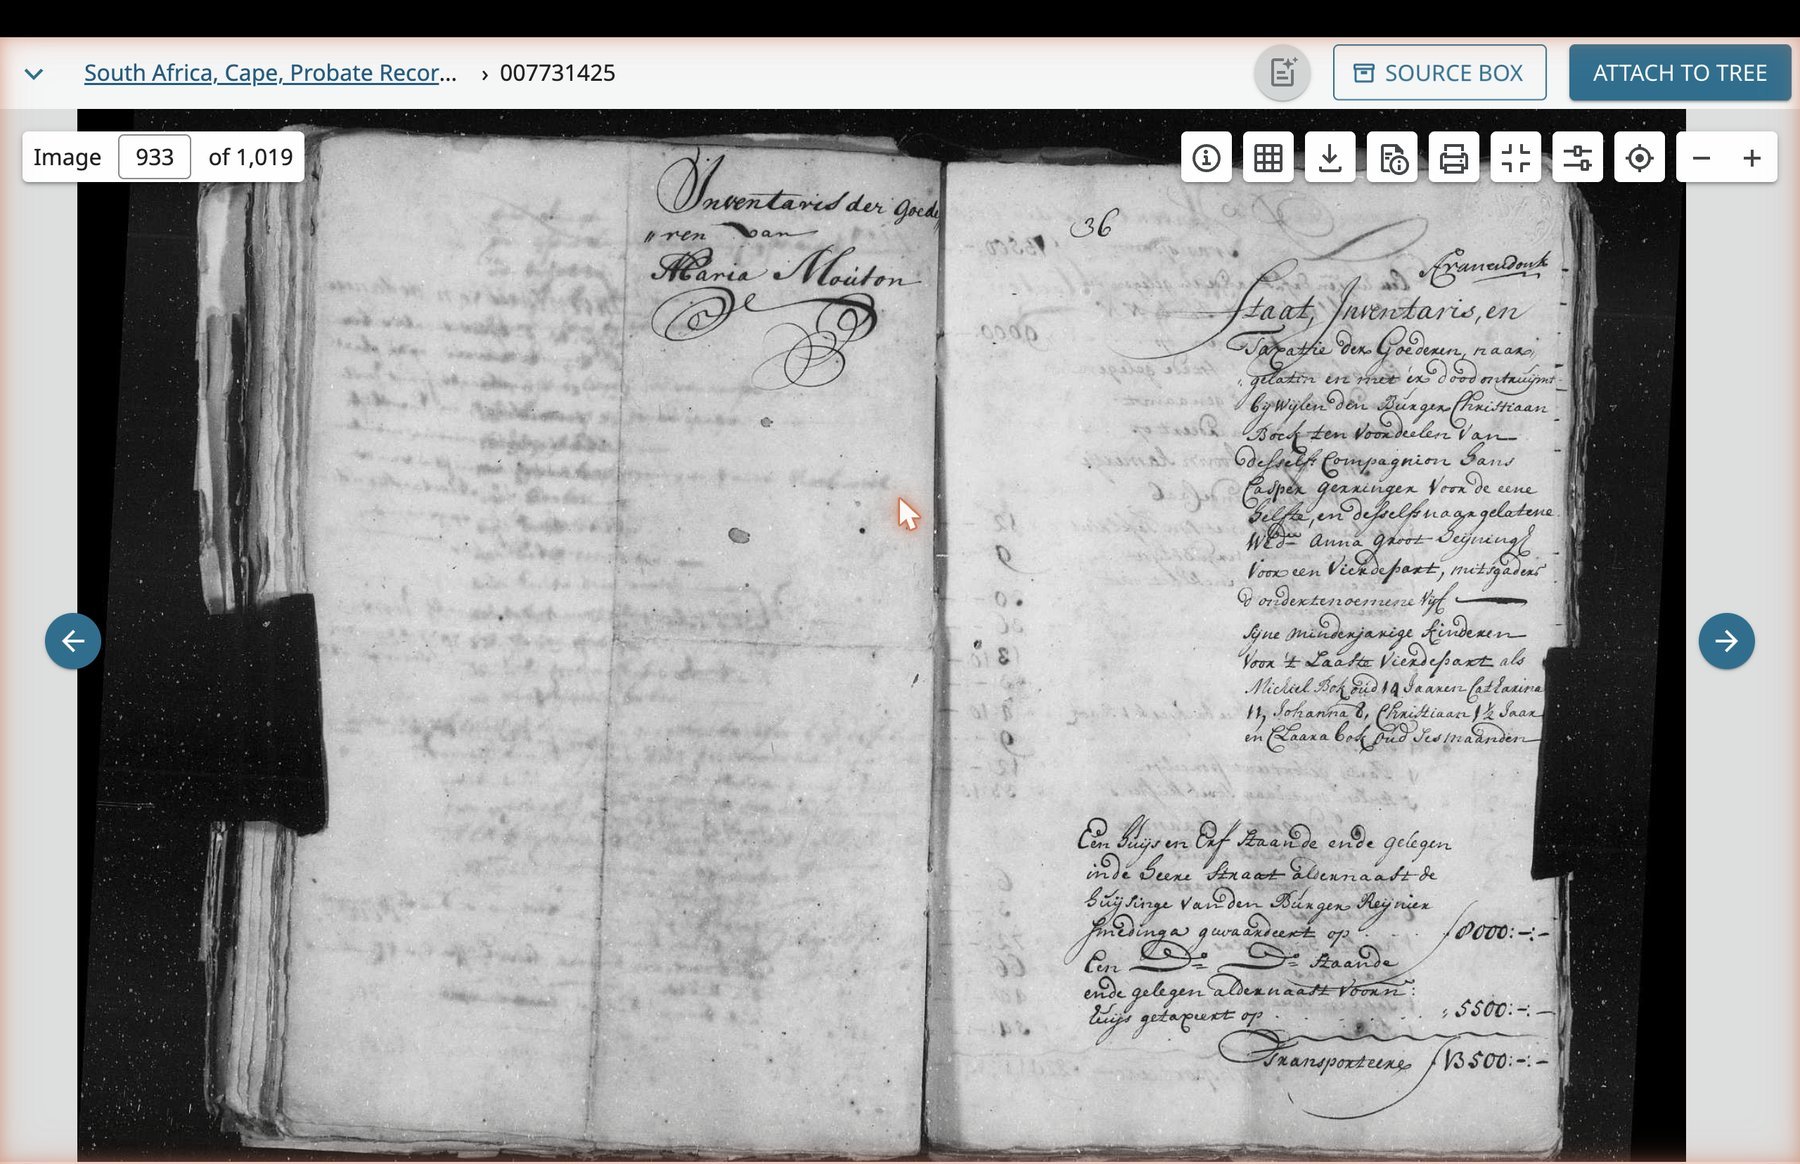 South Africa, Cape, Probate Recor... › 007731425
SOURCE BOX
ATTACH TO TREE
Image 933 of 1,019
Inventaris der Goede
„ren van
Maria Mouton
36
Cranendonk
Staat, Inventaris, en
Taxatie der Goederen, naar,
„gelaten en met 'er dood ontruijmt
bij wijlen den Burger Christiaan
Bock ten voordeelen van
desselfs Compagnion Hans
Casper Gerringer voor de eene
helfte, en desselfs naargelatene
Wed:we Anna Groot
voor een vierdepart, mitsgaders
d'ondertenoemene vijf
sijne minderjarige kinderen
voor 't Laaste vierdepart als
Michiel Bok oud 14 Jaaren Catharina
11, Johanna 8, Christiaan 1½ Jaar
en Claara bok oud ses maanden
Een Huijs en Erf staande ende gelegen
in de Heere straat aldernaast de
huijsinge van den Burger Reijnier
Smedinga gewaardeert op f 8000:-:-
Een D:o D:o staande
ende gelegen aldernaast voorn:
huijs getaxeert op „ 5500:-:-
Transporteere f 13500:-:-